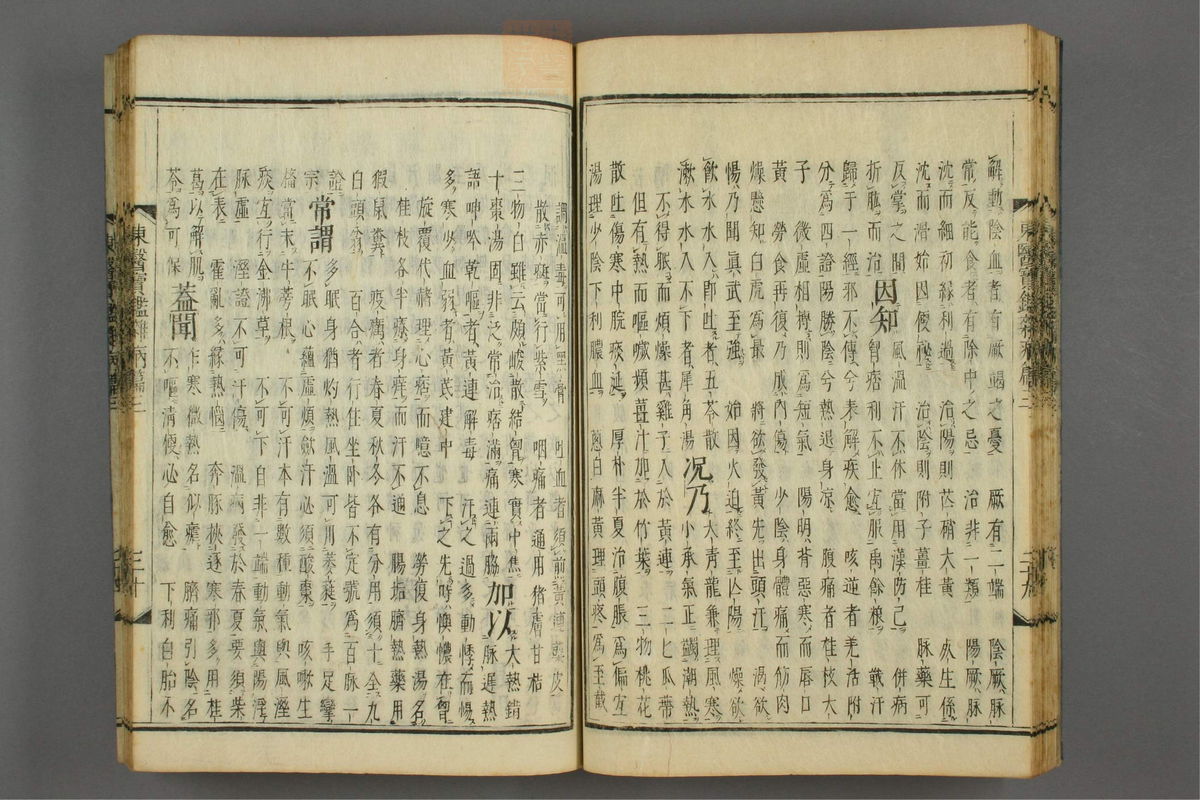 東醫寶鑑雜病篇二
二十九
解動陰血者有厥竭之憂　厥有二端　陰厥脉
常反能食者有除中之忌　治非一類　陽厥脉
沈而細初緣利過　治陽則芒硝大黃　欬生係
沈而滑始因便秘　治陰則附子薑桂　脉藥可
反掌之間　風溫汗不休當用漢防己　併病
因知
折肱而治　胷痞利不止宜服禹餘粮　戰汗
歸于一經邪不傳兮表解疾愈　咳逆者羌活附
分爲四證陽勝陰兮熱退身凉　腹痛者桂枝大
子　微虛相搏則爲短氣　陽明背惡寒而唇口
黃　勞食再復乃成內傷　少陰身體痛而筋肉
燥懸知白虎爲最　將欲發黃先出頭汗　渴欲
惕乃聞眞武至強　始因火迫終至亡陽　燥欲
飮水水入卽吐者五苓散　大青龍兼理風寒
况乃
漱水水入不下者犀角湯　小承氣正蠲潮熱
不得眠而煩燥甚雞子入於黃連　二七瓜帶
但有熱而嘔噦頻薑汁加於竹葉　三物桃花
散吐傷寒中脘痰延　厚朴半夏治腹脹爲偏宜
湯理少陰下利膿血　葱白麻黃理頭疼爲至截
調溫毒可用黑膏　吐血者須煎黃連蘗皮
散赤癍當行紫雪　咽痛者通用猪膚甘桔
三物白雖云頗峻散結胷寒實中焦　大熱錯
加以
十棗湯固非泛常治痞滿痛連兩脇　脉遲熱
語呻吟乾嘔者黃連解毒　汗之過多動悸而惕
多寒少血弱者黃芪建中　下之先時懊憹在胷
旋覆代赭理心痞而噫不息　勞復身熱湯名
桂枝各半療身痒而汗不通　腸垢臍熱藥用
猳鼠糞　疫癘者春夏秋冬各有分用須十全九
白頭翁　百合者行住坐臥皆不定號爲百脉一
證　多眠身猶灼熱風溫可用葳蕤　手足攣
常謂
宗　不眠心蘊虛煩歛汗必須酸棗　咳嗽生
搐當末牛蒡根　不可汗本有數種動氣與風溼
痰宜行金沸草　不可下自非一端動氣與陽浮
脉虛　溼證不可汗傷　溫病發於春夏要須柴
在表　霍亂多緣熱惱　奔豚挾逐寒邪多用桂
葛以解肌　乍寒微熱名似瘧　臍痛引陰名
蓋聞
苓爲可保　不嘔清便必自愈　下利白胎不
東醫寶鑑雜病篇二
三十